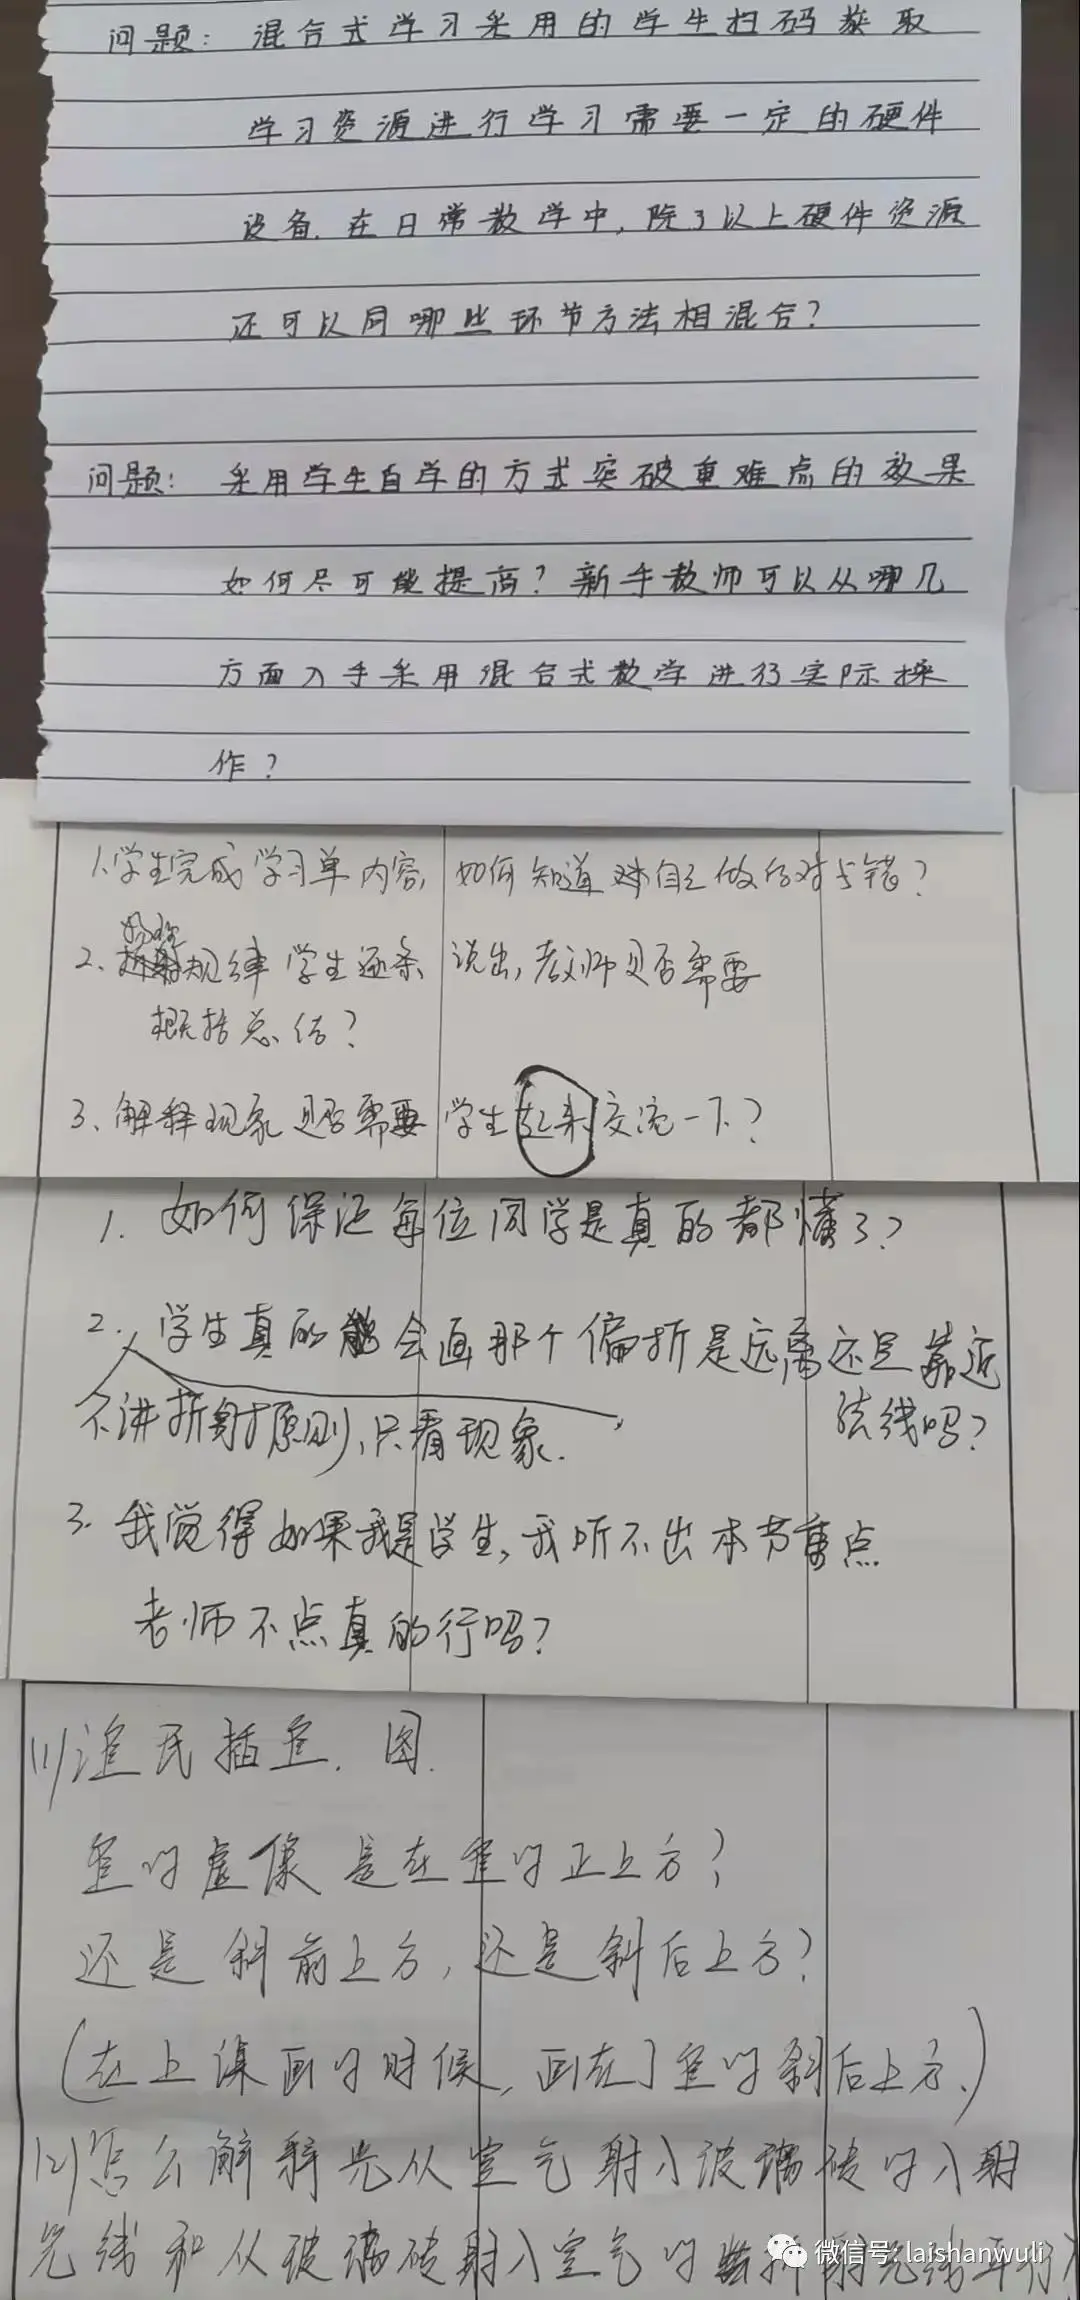 问题：混合式学习采用的学生扫码获取
学习资源进行学习需要一定的硬件
设备.在日常教学中,除了以上硬件资源
还可以同哪些环节方法相混合?
问题：采用学生自学的方式突破重难点的效果
如何尽可能提高?新手教师可以从哪几
方面入手采用混合式教学进行实际操
作?
1.学生完成学习单内容,如何知道自己做的对与错?
2.折射规律学生逐条说出,老师是否需要
概括总结?
3、解释现象是否需要学生起来交流一下?
1.如何保证每位同学是真的都懂了?
2.学生真的能会画那个偏折是远离还是靠近
法线吗?
不讲折射原则,只看现象.
3.我觉得如果我是学生,我听不出本节重点
老师不点真的行吗?
(1)渔民插鱼.图.
鱼的虚像是在鱼的正上方?
还是斜前上方,还是斜后上方?
(在上课画的时候,画在了鱼的斜后上方.)
(2)怎么解释光从空气射入玻璃砖的入射
光线和从玻璃砖射入空气的折射光线平行?
微信号: laishanwuli